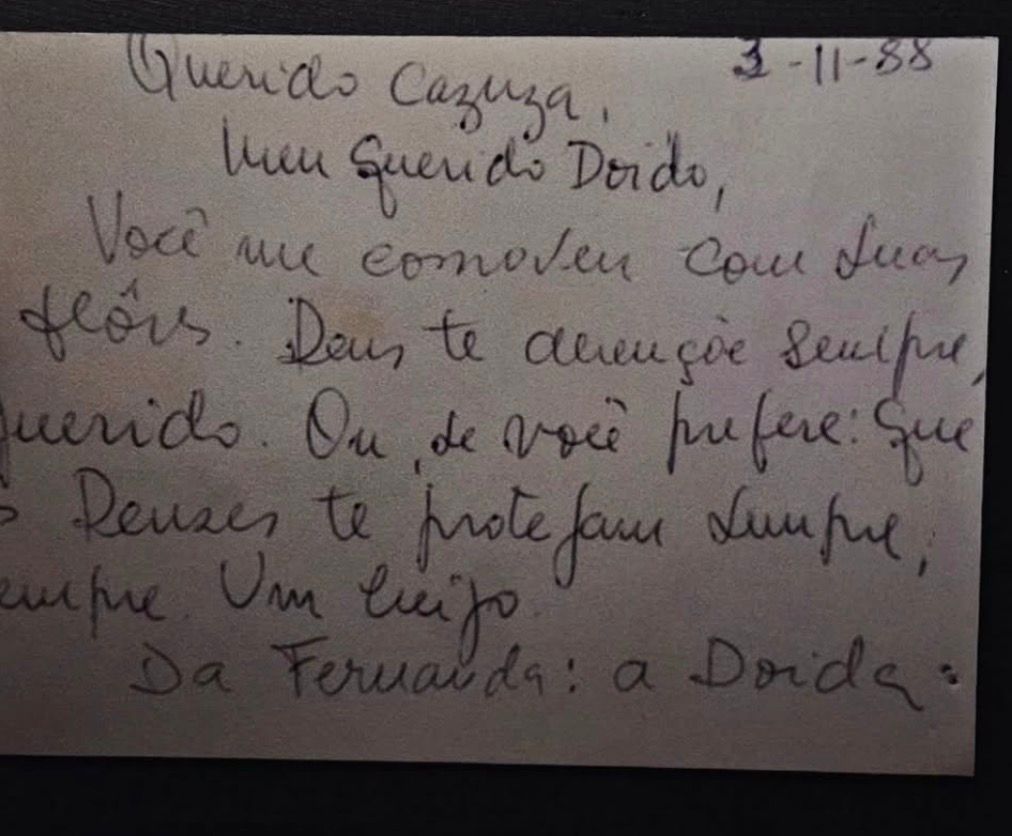 3-11-88
Querido Cazuza,
Meu Querido Doido,
Você me comoveu com suas
flôres. Deus te abençõe sempre,
querido. Ou, se você prefere: Que
s Deuses te protejam sempre,
empre. Um beijo.
Da Fernanda: a Doida: